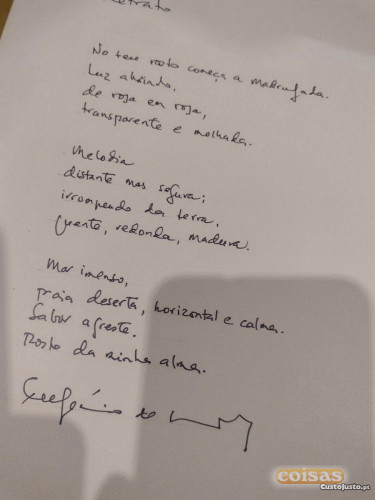 Retrato
No teu rosto começa a madrugada.
Luz abrindo,
de rosa em rosa,
transparente e molhada.
Melodia
distante mas segura;
irrompendo da terra,
quente, redonda, madura.
Mar imenso,
praia deserta, horizontal e calma.
Sabor agreste.
Rosto da minha alma.
Eugénio de
coisas
CustoJusto.pt